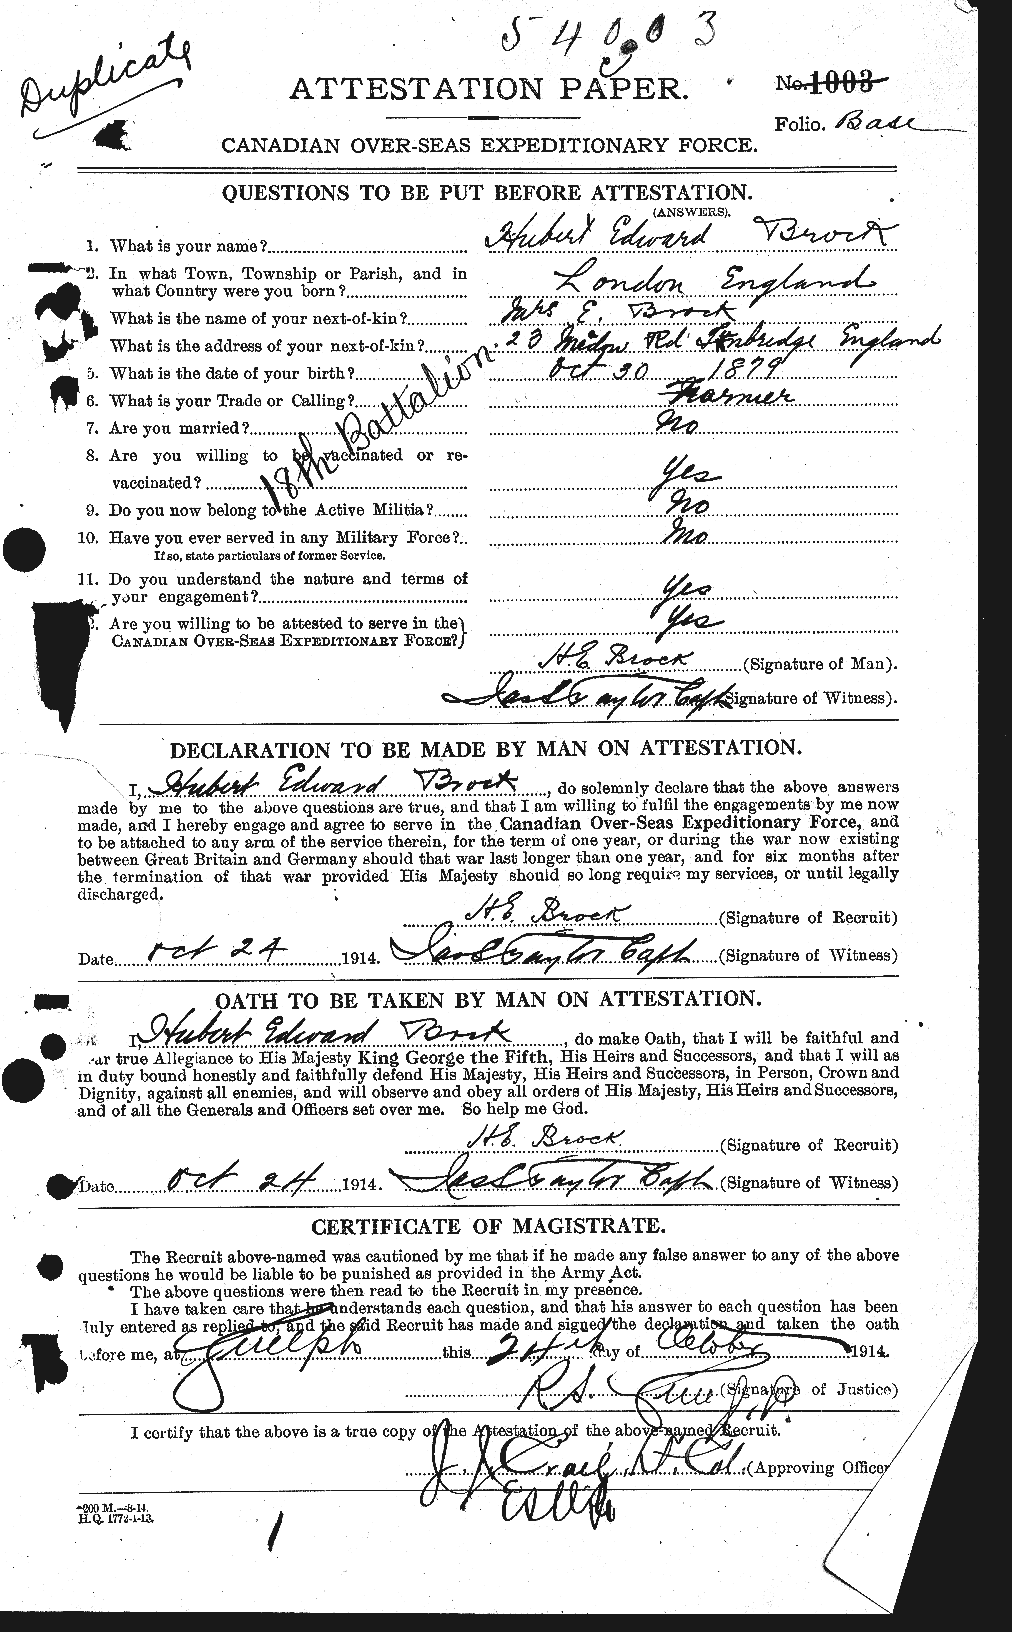 54003
Duplicate
ATTESTATION PAPER.
No. 1003
Folio. Base
CANADIAN OVER-SEAS EXPEDITIONARY FORCE.
QUESTIONS TO BE PUT BEFORE ATTESTATION.
(ANSWERS).
1. What is your name? Hubert Edward Brock
2. In what Town, Township or Parish, and in
what Country were you born? London England
What is the name of your next-of-kin? Mrs E. Brock
What is the address of your next-of-kin? 23 Rd Tonbridge England
5. What is the date of your birth? Oct 30 1879
6. What is your Trade or Calling? Farmer
7. Are you married? No
8. Are you willing to be vaccinated or re-
vaccinated? Yes
9. Do you now belong to the Active Militia? No
10. Have you ever served in any Military Force?.. No
If so, state particulars of former Service.
11. Do you understand the nature and terms of
your engagement? Yes
Are you willing to be attested to serve in the
CANADIAN OVER-SEAS EXPEDITIONARY FORCE? Yes
18th Battalion
H.E. Brock (Signature of Man).
Jas S Taylor Capt (Signature of Witness).
DECLARATION TO BE MADE BY MAN ON ATTESTATION.
I, Hubert Edward Brock, do solemnly declare that the above answers
made by me to the above questions are true, and that I am willing to fulfil the engagements by me now
made, and I hereby engage and agree to serve in the Canadian Over-Seas Expeditionary Force, and
to be attached to any arm of the service therein, for the term of one year, or during the war now existing
between Great Britain and Germany should that war last longer than one year, and for six months after
the termination of that war provided His Majesty should so long require my services, or until legally
discharged.
H.E. Brock (Signature of Recruit)
Date Oct 24 1914. Jas S Taylor Capt (Signature of Witness)
OATH TO BE TAKEN BY MAN ON ATTESTATION.
I, Hubert Edward Brock, do make Oath, that I will be faithful and
ar true Allegiance to His Majesty King George the Fifth, His Heirs and Successors, and that I will as
in duty bound honestly and faithfully defend His Majesty, His Heirs and Successors, in Person, Crown and
Dignity, against all enemies, and will observe and obey all orders of His Majesty, His Heirs and Successors,
and of all the Generals and Officers set over me. So help me God.
H.E. Brock (Signature of Recruit)
Date Oct 24 1914. Jas S Taylor Capt (Signature of Witness)
CERTIFICATE OF MAGISTRATE.
The Recruit above-named was cautioned by me that if he made any false answer to any of the above
questions he would be liable to be punished as provided in the Army Act.
The above questions were then read to the Recruit in my presence.
I have taken care that he understands each question, and that his answer to each question has been
duly entered as replied to, and the said Recruit has made and signed the declaration and taken the oath
before me, at Guelph this 24th day of October 1914.
R.S. J.P. (Signature of Justice)
I certify that the above is a true copy of the Attestation of the above-named Recruit.
Craig, Lt. Col. (Approving Officer
200 M.—8-14.
H.Q. 1772-1-13.
1